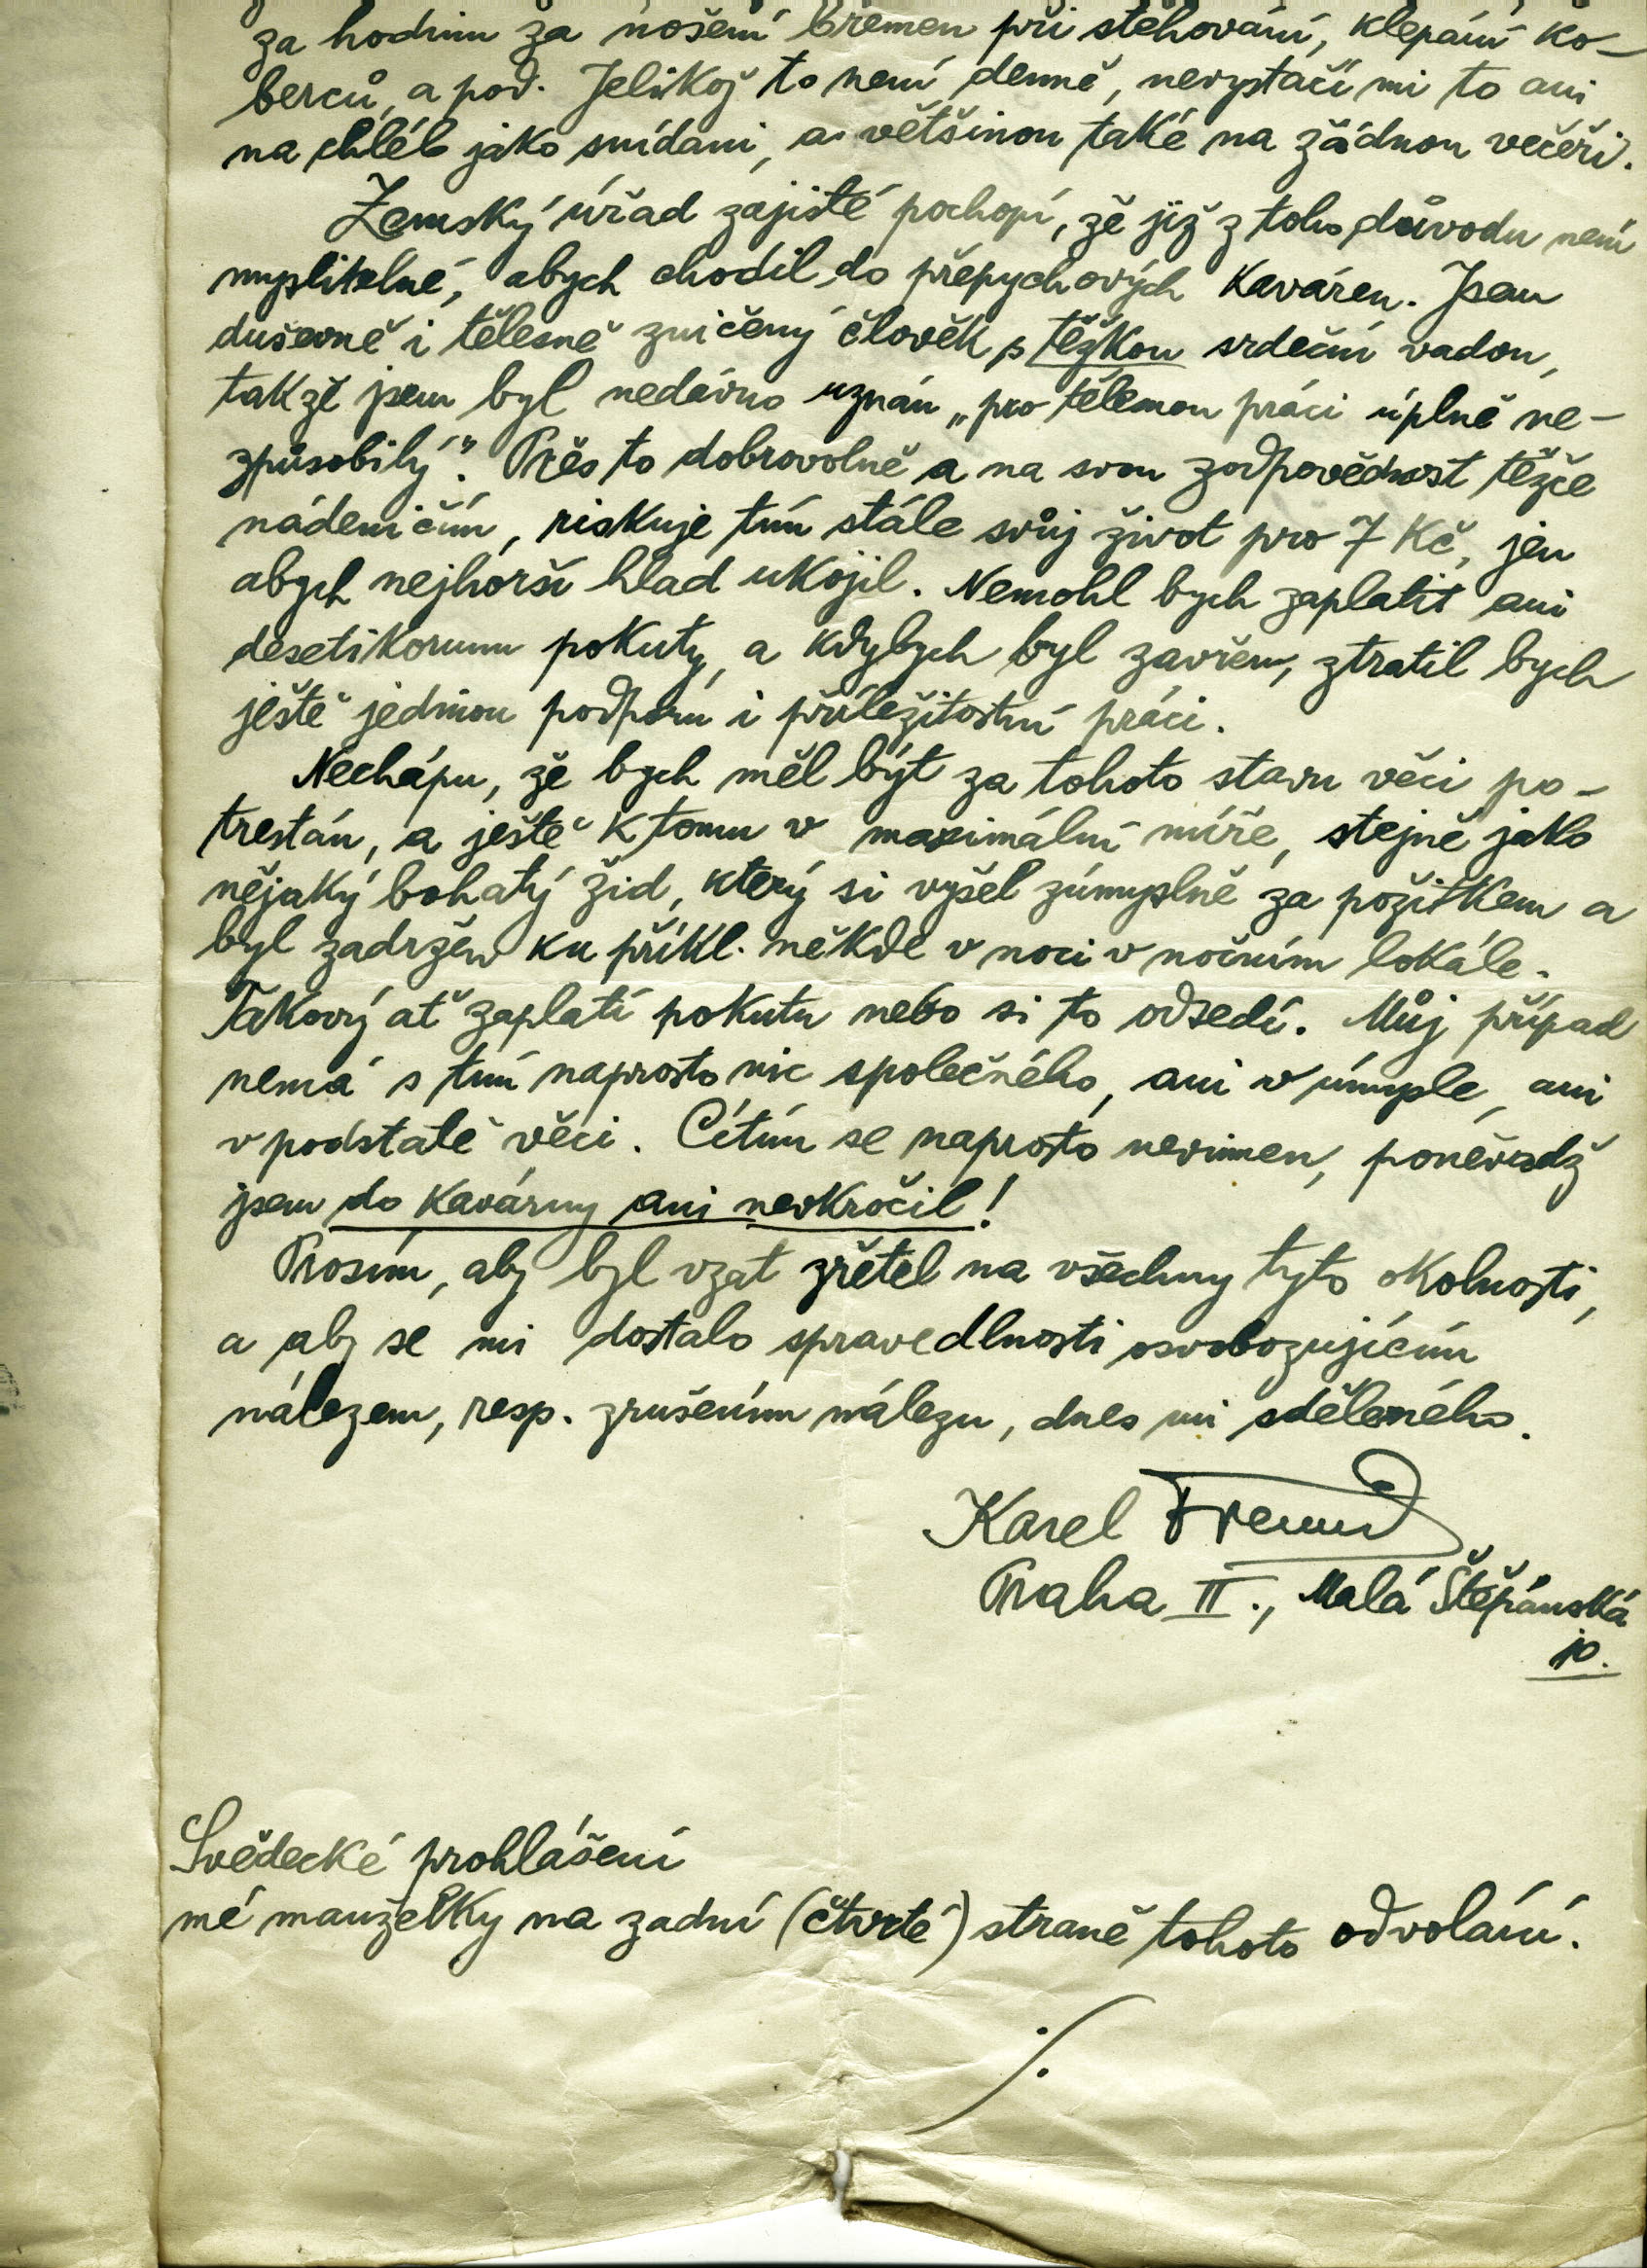 za hodinu za nošení břemen při stěhování, klepání ko-
berců, a pod. Jelikož to není denně, nevystačí mi to ani
na chléb jako snídani, a většinou také na žádnou večeři.
Zemský úřad zajisté pochopí, že již z toho důvodu není
myslitelné, abych chodil do přepychových kaváren. Jsem
duševně i tělesně zničený člověk s těžkou srdeční vadou,
takže jsem byl nedávno uznán „pro tělesnou práci úplně ne-
způsobilý". Přes to dobrovolně a na svou zodpovědnost těžce
nádeničím, riskuje tím stále svůj život pro 7 Kč, jen
abych nejhorší hlad ukojil. Nemohl bych zaplatit ani
desetikorunu pokuty, a kdybych byl zavřen, ztratil bych
ještě jedinou podporu i příležitostní práci.
Nechápu, že bych měl být za tohoto stavu věci po-
trestán, a ještě k tomu v maximální míře, stejně jako
nějaký bohatý žid, který si vyšel zúmyslně za požitkem a
byl zadržen ku příkl. někde v noci v nočním lokále.
Takový ať zaplatí pokutu nebo si to odsedí. Můj případ
nemá s tím naprosto nic společného, ani v úmysle, ani
v podstatě věci. Cítím se naprosto nevinnen, poněvadž
jsem do kavárny ani nevkročil!
Prosím, aby byl vzat zřetel na všechny tyto okolnosti,
a aby se mi dostalo spravedlnosti osvobozujícím
nálezem, resp. zrušením nálezu, dnes mi sděleného.
Karel Freund
Praha II., Malá Štěpánská
10.
Svědecké prohlášení
mé manželky na zadní (čtvrté) straně tohoto odvolání.
./.